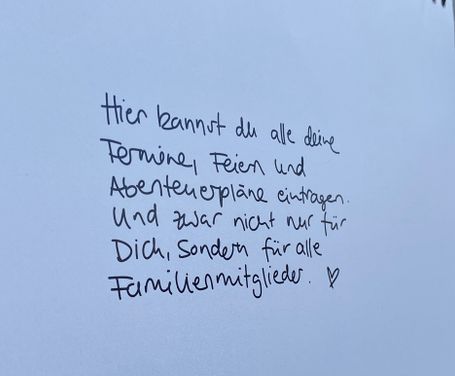 Hier kannst du alle deine
Termine, Feiern und
Abenteuerpläne eintragen.
Und zwar nicht nur für
Dich, Sondern für alle
Familienmitglieder. ♡